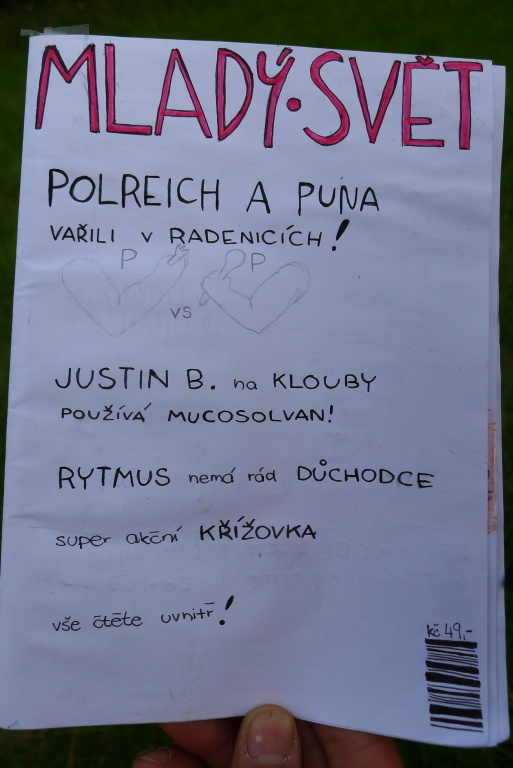 MLADÝ·SVĚT
POLREICH A PUNA
VAŘILI V RADENICÍCH!
P P
VS
JUSTIN B. na KLOUBY
POUŽÍVÁ MUCOSOLVAN!
RYTMUS nemá rád DŮCHODCE
super akční KŘÍŽOVKA
vše čtěte uvnitř!
Kč 49,-